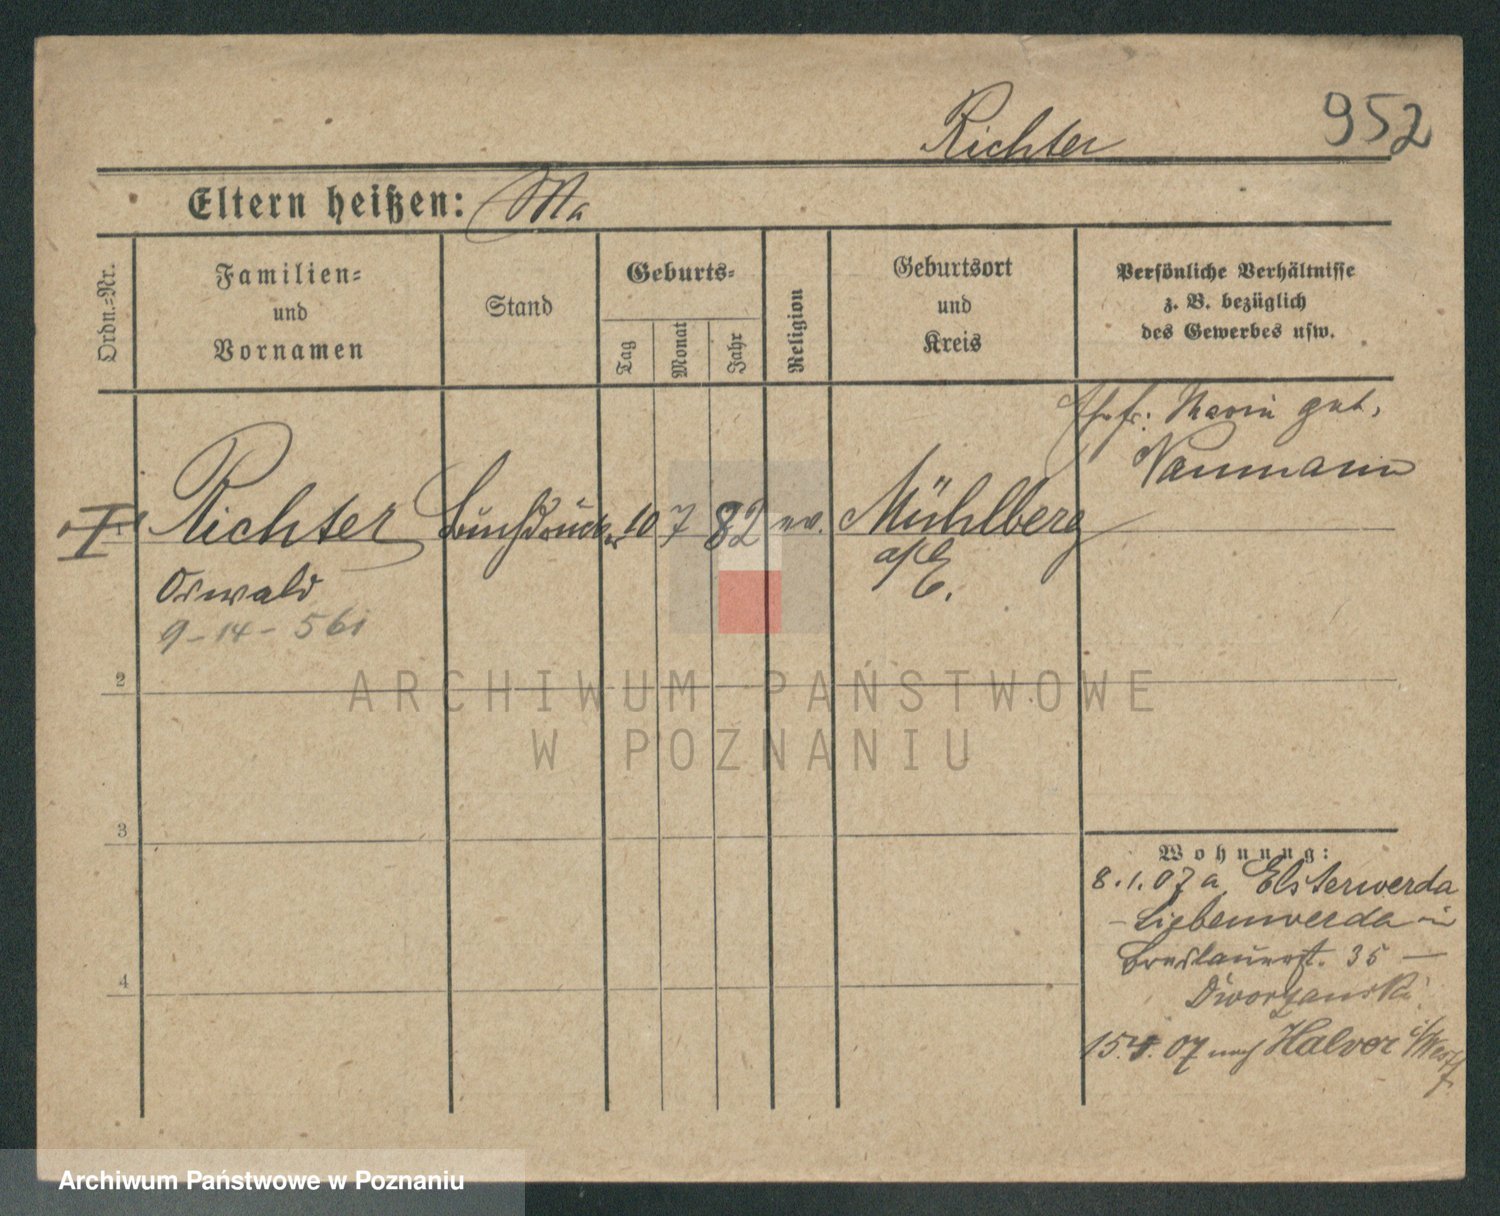 Richter 952
Eltern heißen: Ma
Ordn.-Nr.
Familien-
und
Vornamen
Stand
Geburts-
Tag
Monat
Jahr
Religion
Geburtsort
und
Kreis
Persönliche Verhältnisse
z. B. bezüglich
des Gewerbes usw.
Ehefr: Marie geb.
Naumann
I Richter Buchdrucker 10 7 82 ev. Mühlberg
a/E.
Oswald
9-14-561
2
3
4
Wohnung:
8.1.07 a Elsterwerda
- Liebenwerda in
Breslauerst. 35 —
Dworzanski
15. . 07 nach Halver i/Westf
ARCHIWUM PAŃSTWOWE
W POZNANIU
Archiwum Państwowe w Poznaniu